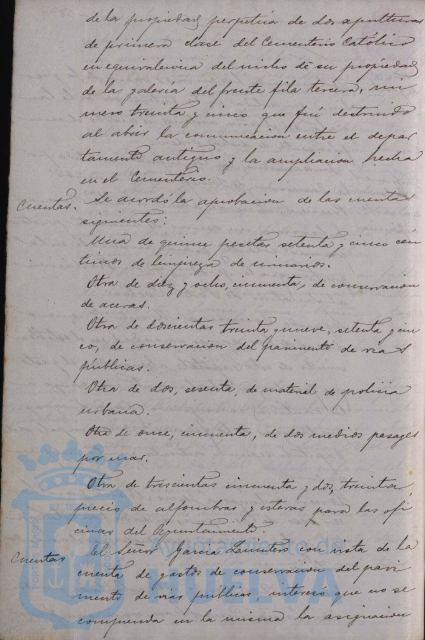 de la propiedad perpetua de dos sepulturas
de primera clase del Cementerio Católico
en equivalencia del nicho de su propiedad
de la galeria del frente fila tercera, nú
mero treinta y cinco que fué destruido
al abrir la comunicacion entre el depar
tamento antiguo y la ampliacion hecha
en el Cementerio.
Cuentas. Se acordó la aprobacion de las cuentas
siguientes:
Una de quince pesetas setenta y cinco cén
timos de limpieza de urinarios.
Otra de diez y ocho, cincuenta, de conservacion
de aceras.
Otra de doscientas treinta y nueve, setenta y cin
co, de conservacion del pavimento de vias
públicas.
Otra de dos, sesenta, de material de policia
urbana.
Otra de once, cincuenta, de dos medios pasages
por mar.
Otra de trescientas cincuenta y dos, treinta,
precio de alfombras y esteras para las ofi
cinas del Ayuntamiento.
Cuentas El Señor Garcia con vista de la
cuenta de gastos de conservacion del pavi
mento de vias publicas interesó que no se
comprenda en la misma la asignacion
Ayuntamiento de
HUELVA